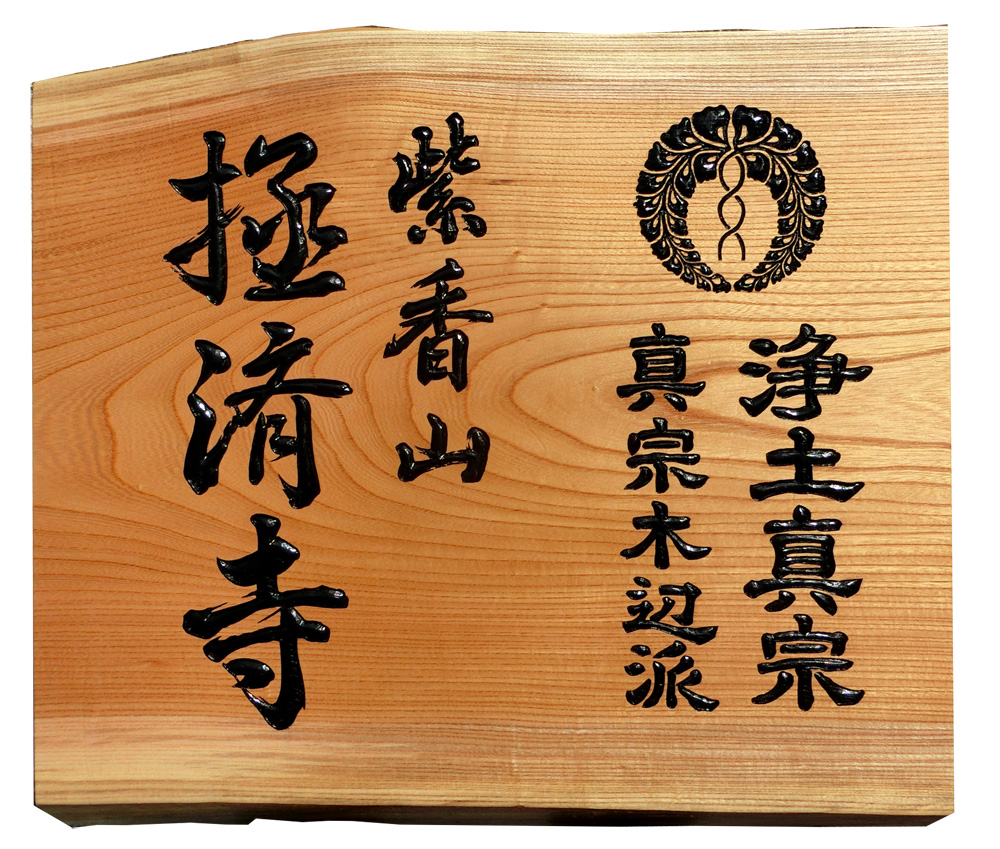 浄土真宗
真宗木辺派
紫香山
拯済寺